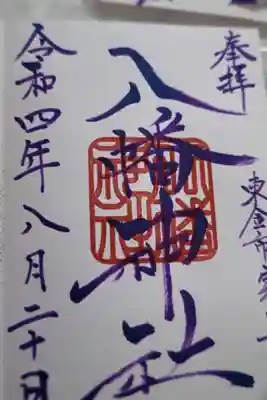 奉拝
東金市
八幡神社
令和四年八月二十日